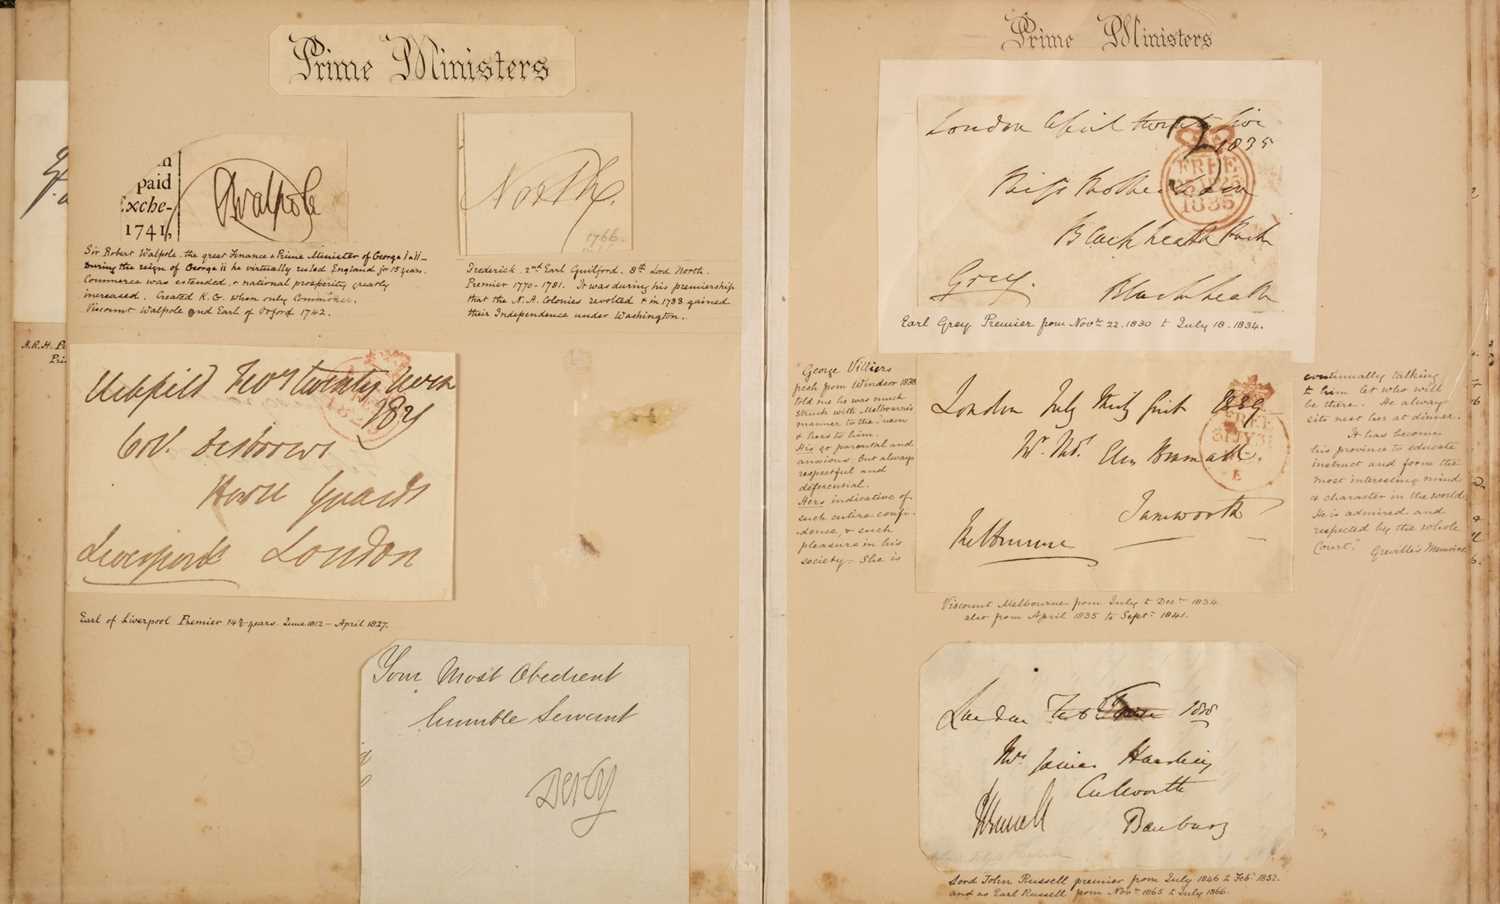 Prime Ministers
paid
Exche-
1741,
RWalpole
Sir Robert Walpole. the great Finance & Prime Minister of George I & II—
During the reign of George II he virtually ruled England for 15 years.
Commerce was extended, & national prosperity greatly
increased. Created K.G. when only Commoner.
Viscount Walpole and Earl of Orford 1742.
North.
1766.
Frederick. 2nd Earl Guilford. 8th Lord North.
Premier 1770-1781. It was during his premiership
that the N.A. Colonies revolted & in 1783 gained
their Independence under Washington.
twenty seven
Horse Guards
Liverpool London
Earl of Liverpool Premier 14¾ years. June 1812 — April 1827.
Your Most Obedient
humble Servant
Derby
Prime Ministers
London April twenty five
1835
FREE
25 AP 25
1835
Blackheath Park
Grey. Blackheath
Earl Grey Premier from Novr. 22. 1830 to July 18. 1834.
"George Villiers
told me he was much
struck with Melbourne's
manner to the
& hers to him.
His so parental and
anxious but always
respectful and
deferential.
Hers indicative of
such entire confi-
dence, & such
pleasure in his
society — She is
London July thirty first 1839
FREE
31 JY 31
E
Tamworth
Melbourne
Viscount Melbourne from July to Decr. 1834.
also from April 1835 to Septr. 1841.
continually talking
to him let who will
be there. He always
sits next her at dinner.
It has become
his province to educate
instruct and form the
most interesting mind
& character in the world
He is admired and
respected by the whole
Court."
Greville's Memoirs
London Feb
Mrs James
Culworth
JRussell Banbury
Lord John Russell premier from July 1846 to Feb. 1852.
and as Earl Russell from Novr. 1865 to July 1866.